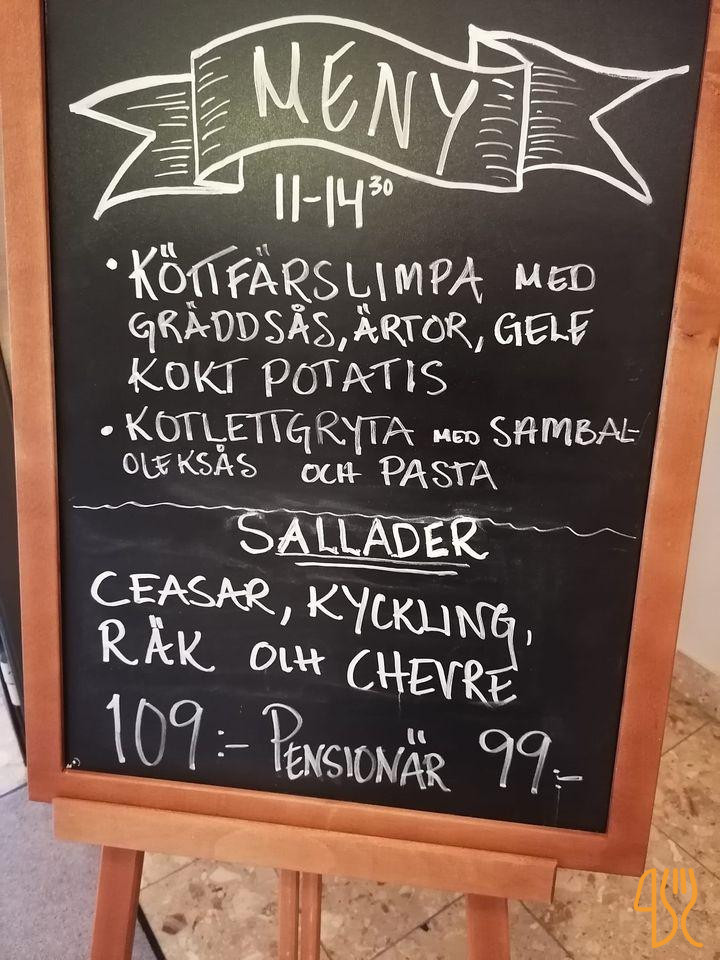 MENY
11-14³⁰
• KÖTTFÄRSLIMPA MED
GRÄDDSÅS, ÄRTOR, GELE
KOKT POTATIS
• KOTLETTGRYTA MED SAMBAL-
OLEKSÅS OCH PASTA
SALLADER
CEASAR, KYCKLING,
RÄK OCH CHEVRE
109:- PENSIONÄR 99:-